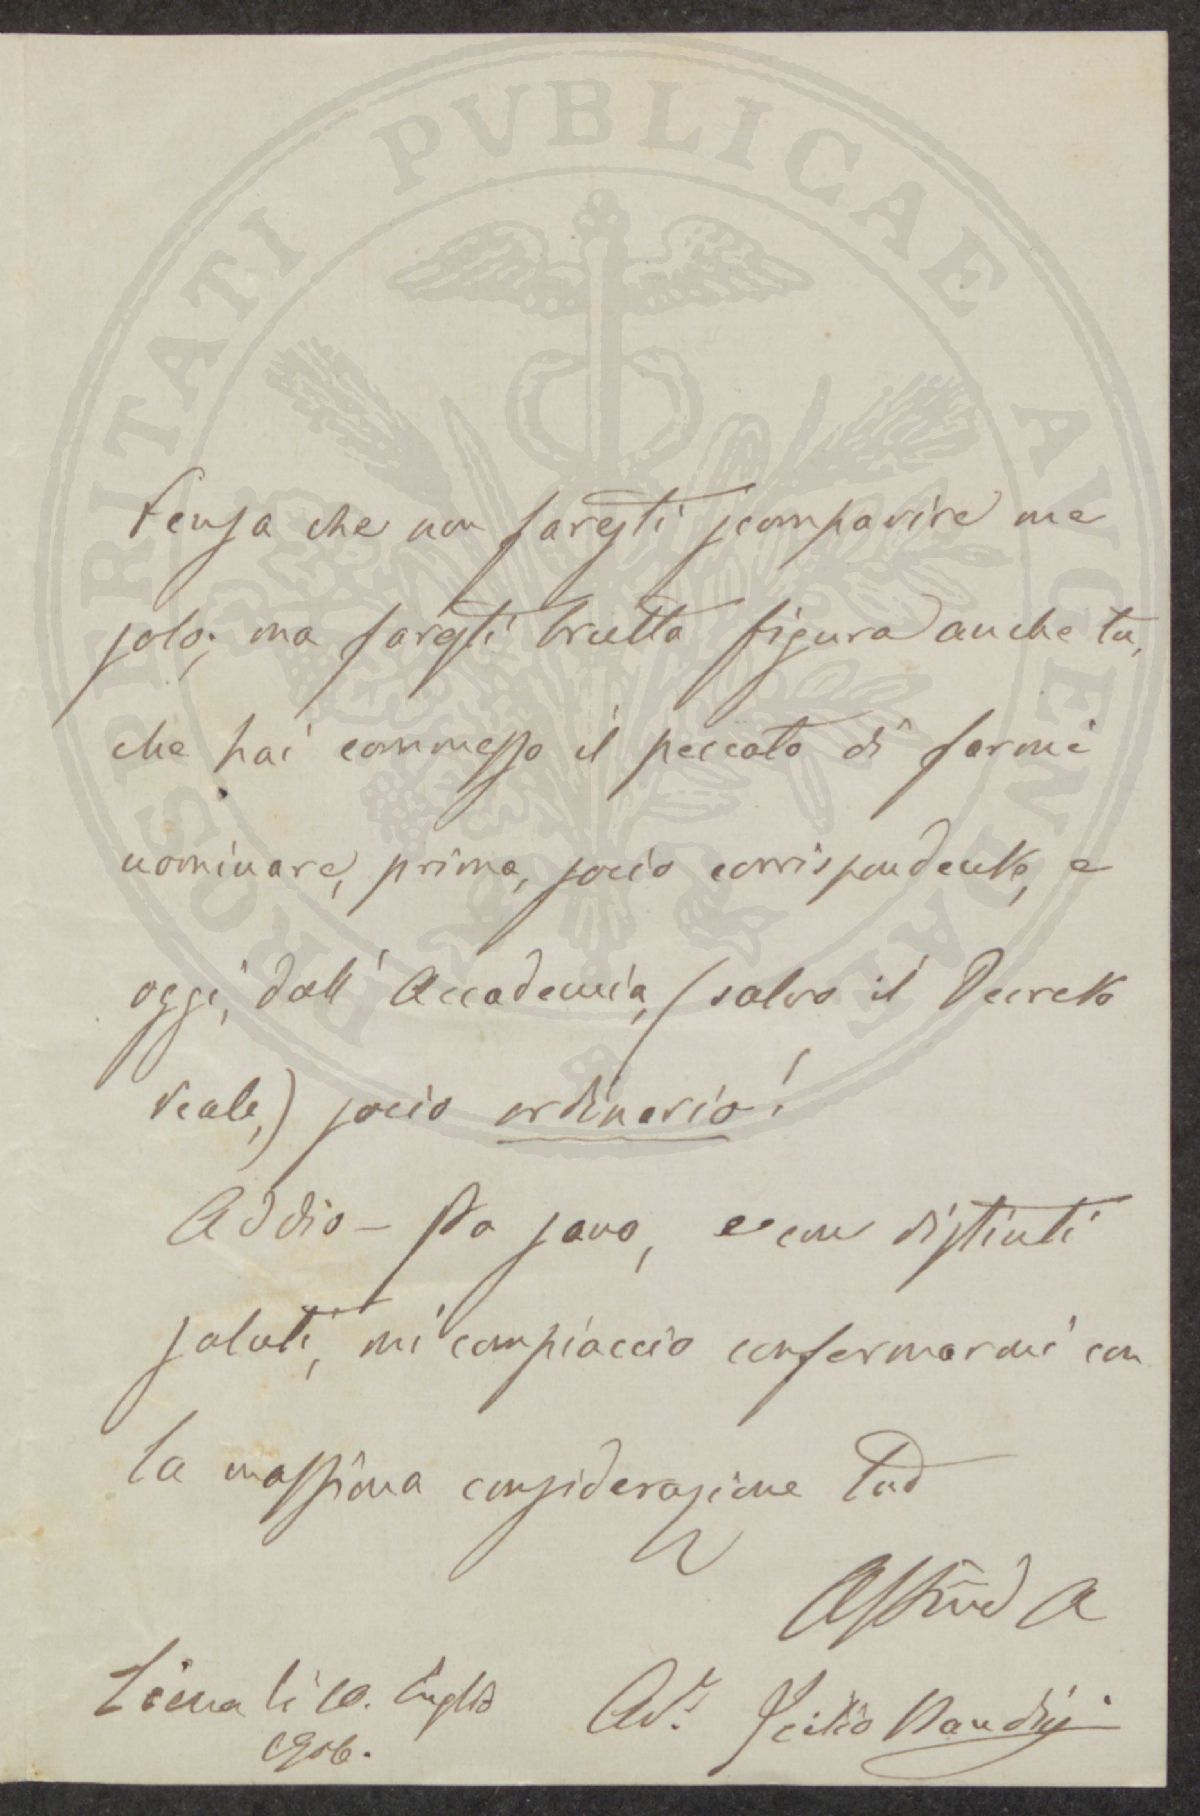 PROSPERITATI PVBLICAE AVGENDAE
Pensa che non faresti scomparire me
solo; ma faresti brutta figura anche tu,
che hai commesso il peccato di farmi
nominare, prima, socio corrispondente, e
oggi, dall' Accademia, (salvo il Decreto
reale,) socio ordinario!
Addio – Sta sano, e con distinti
saluti, mi compiaccio confermarmi con
la massima considerazione Tuo
Affmo A
Siena li 10. Luglio
1906.
Avv. Icilio Bandini